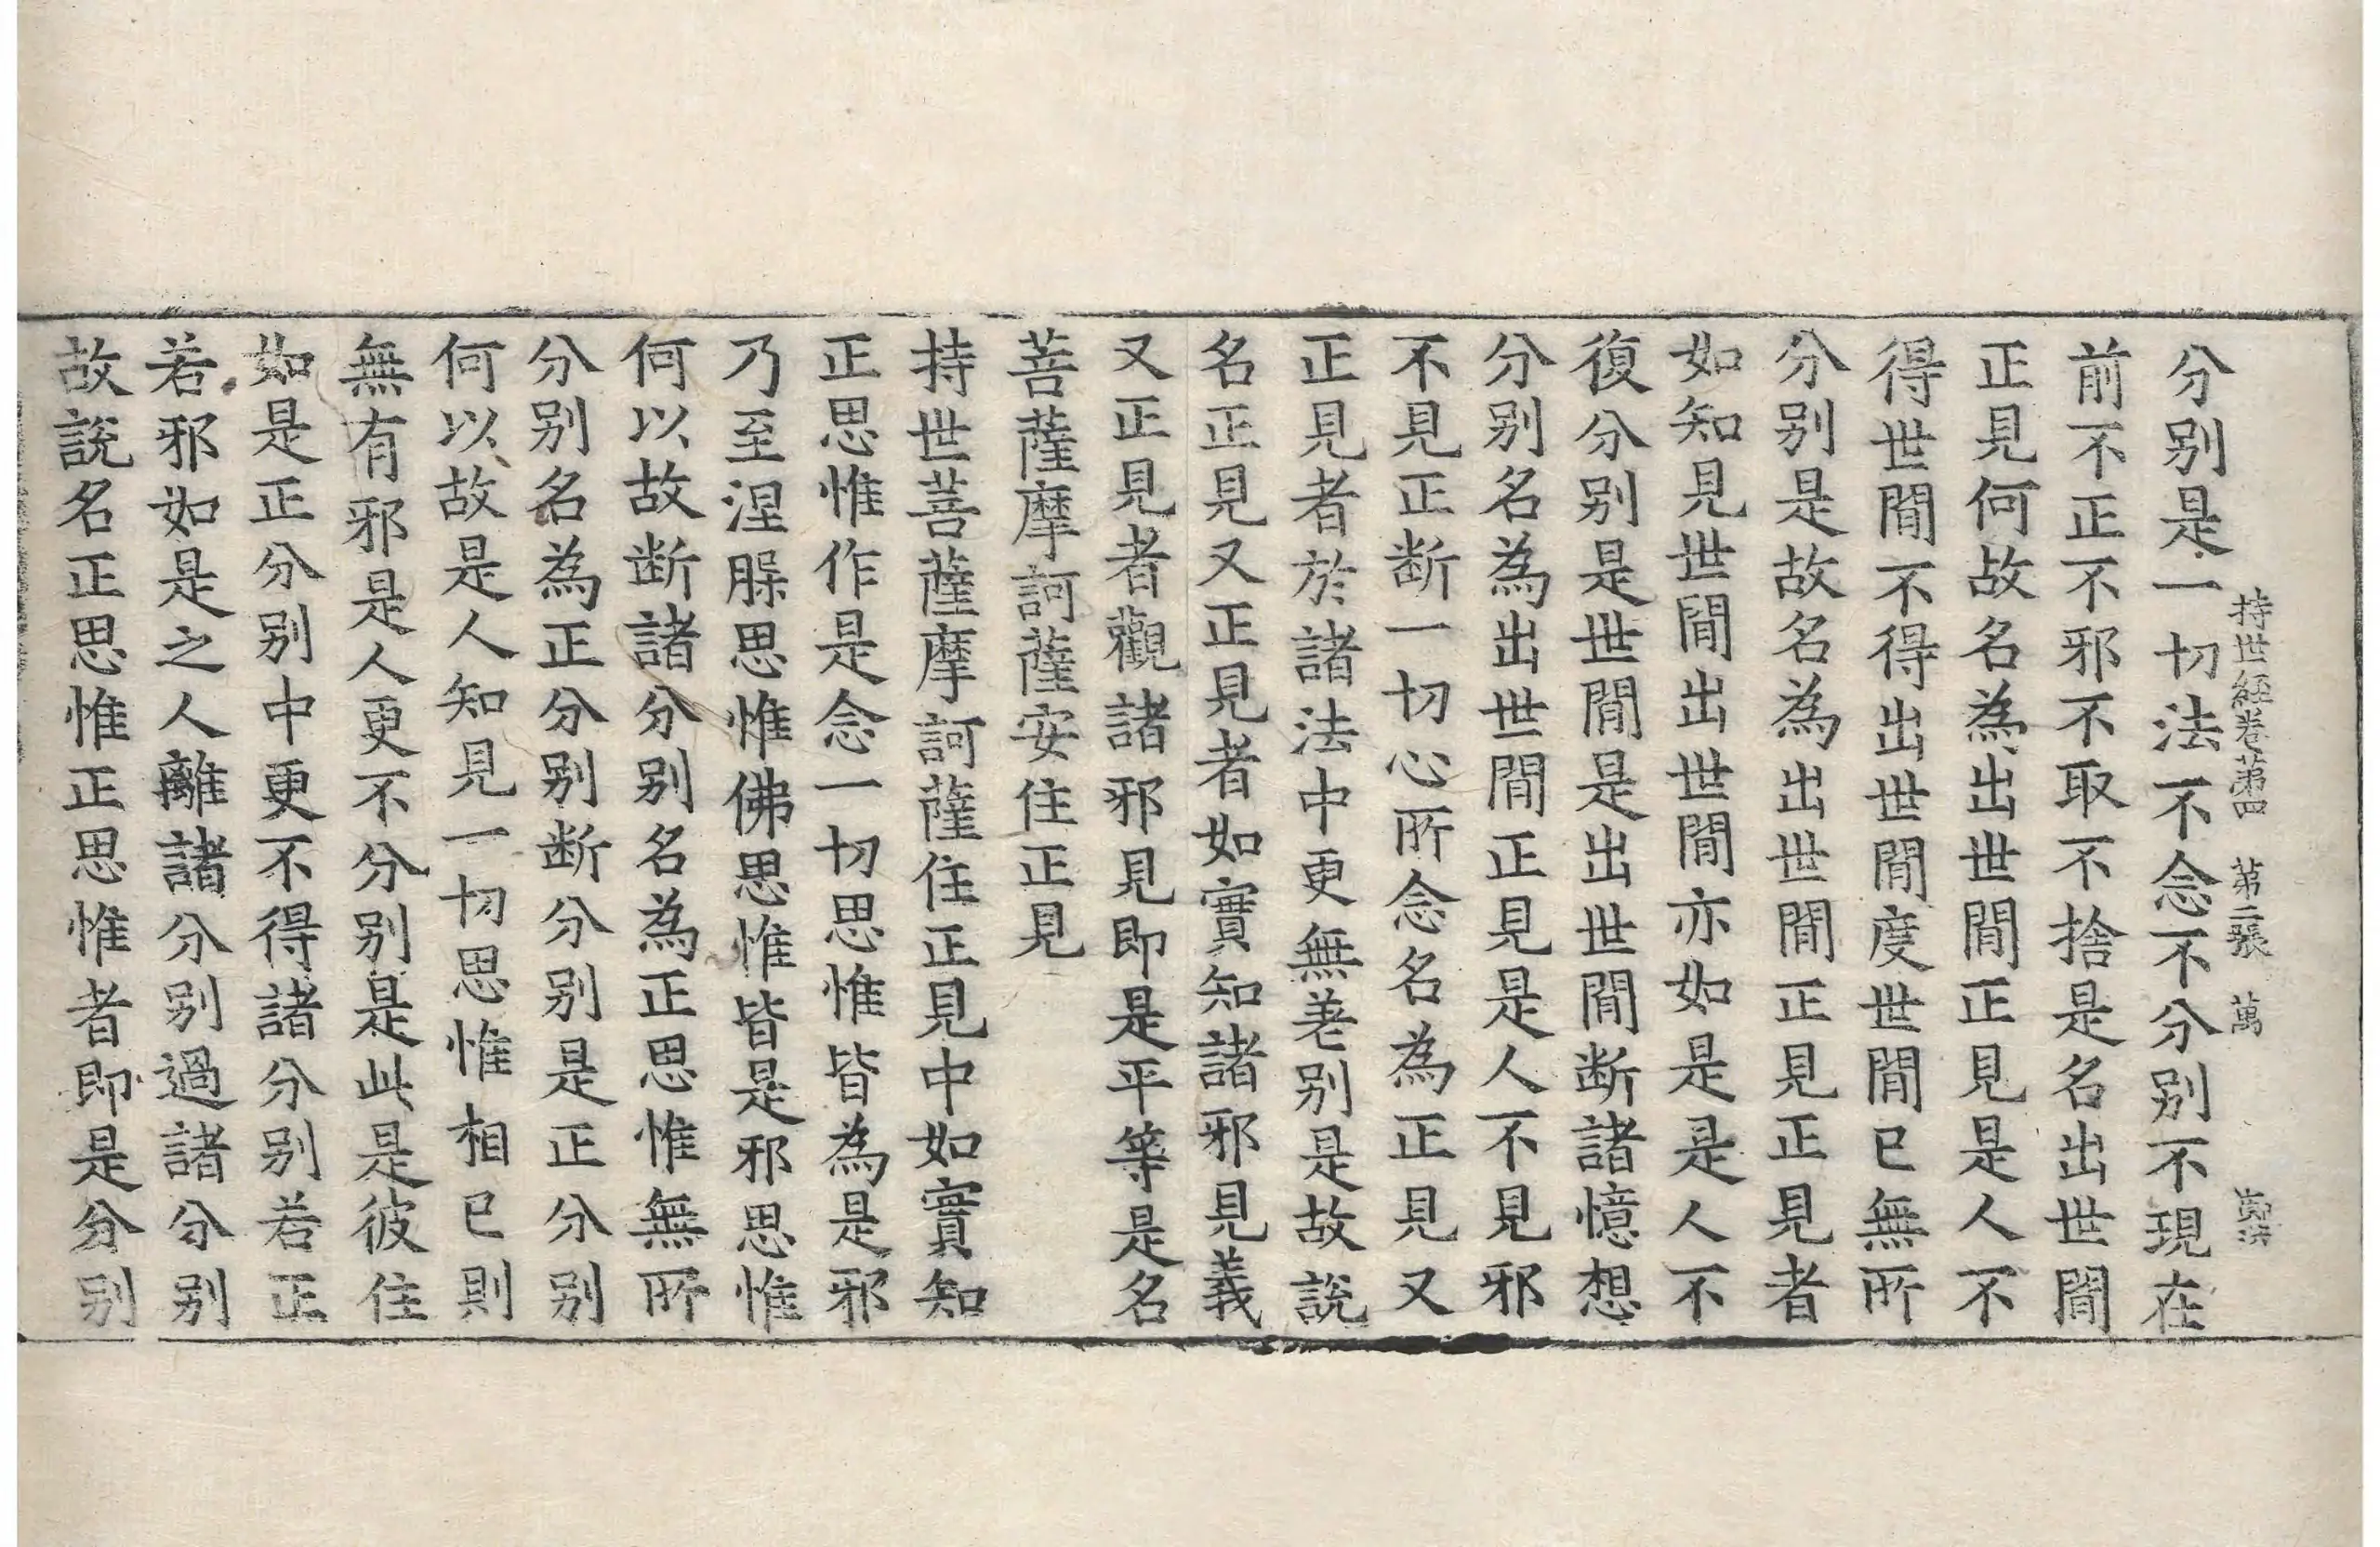 持世経卷第四 第二張 萬
分别是一切法不念不分别不現在
前不正不邪不取不捨是名出世間
正見何故名為出世間正見是人不
得世間不得出世間度世間已無所
分别是故名為出世間正見正見者
如知見世間出世間亦如是是人不
復分别是世間是出世間断諸憶想
分别名為出世間正見是人不見邪
不見正断一切心所念名為正見又
正見者於諸法中更無差别是故說
名正見又正見者如實知諸邪見義
又正見者觀諸邪見即是平等是名
菩薩摩訶薩安住正見
持世菩薩摩訶薩住正見中如實知
正思惟作是念一切思惟皆為是邪
乃至涅槃思惟佛思惟皆是邪思惟
何以故断諸分别名為正思惟無所
分别名為正分别断分别是正分别
何以故是人知見一切思惟相已則
無有邪是人更不分别是此是彼住
如是正分别中更不得諸分别若正
若邪如是之人離諸分别過諸分别
故說名正思惟正思惟者即是分别